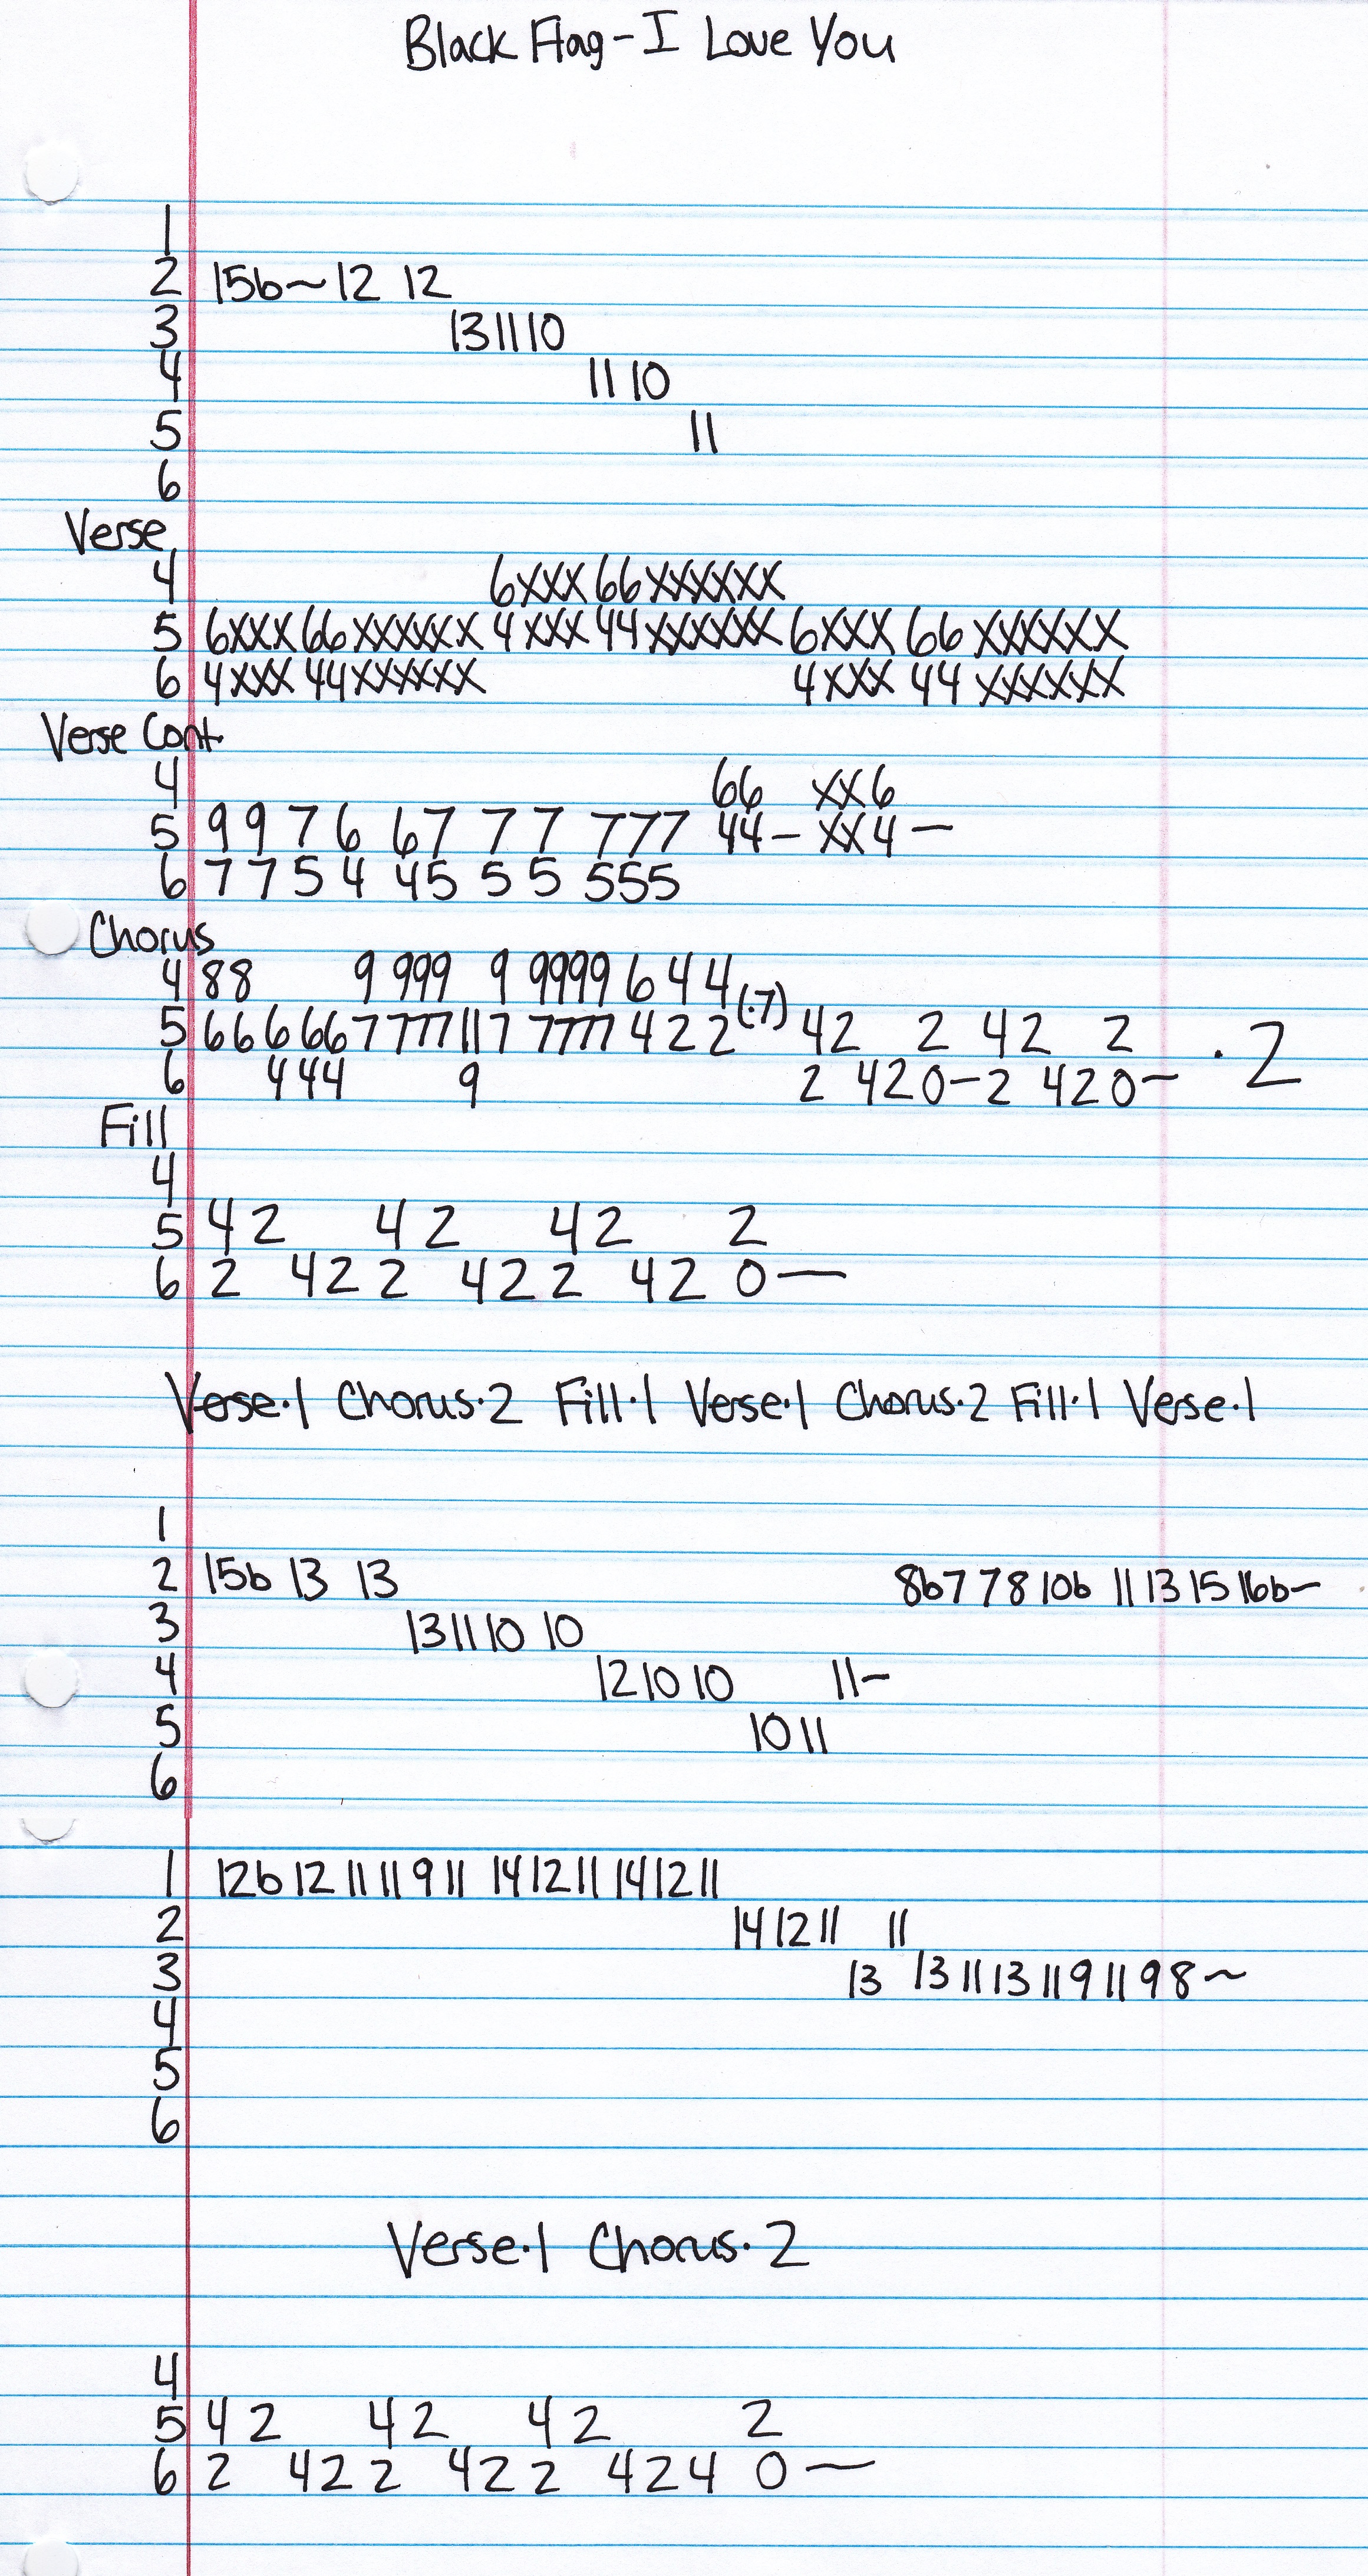 Black Flag - I Love You
1
2 15b~ 12 12
3 13 11 10
4 11 10
5 11
6
Verse
4 6xxx 66xxxxxx
5 6xxx 66xxxxxx 4xxx 44xxxxxx 6xxx 66 xxxxxx
6 4xxx 44xxxxxx 4xxx 44 xxxxxx
Verse Cont.
4 66 xx6
5 9 9 7 6 67 7 7 777 44- xx4 -
6 7 7 5 4 45 5 5 555
Chorus
4 88 9 999 9 9999 6 4 4
5 66 6 66 7 777 11 7 7777 4 2 2 (·7) 42 2 42 2 · 2
6 444 9 2 420-2 420-
Fill
4
5 42 42 42 2
6 2 42 2 42 2 42 0-
Verse·1 Chorus·2 Fill·1 Verse·1 Chorus·2 Fill·1 Verse·1
1
2 15b 13 13 8b 7 7 8 10b 11 13 15 16b~
3 13 11 10 10
4 12 10 10 11~
5 10 11
6
1 12b 12 11 11 9 11 14 12 11 14 12 11
2 14 12 11 11
3 13 13 11 13 11 9 11 9 8~
4
5
6
Verse·1 Chorus·2
4
5 42 42 42 2
6 2 42 2 42 2 424 0-